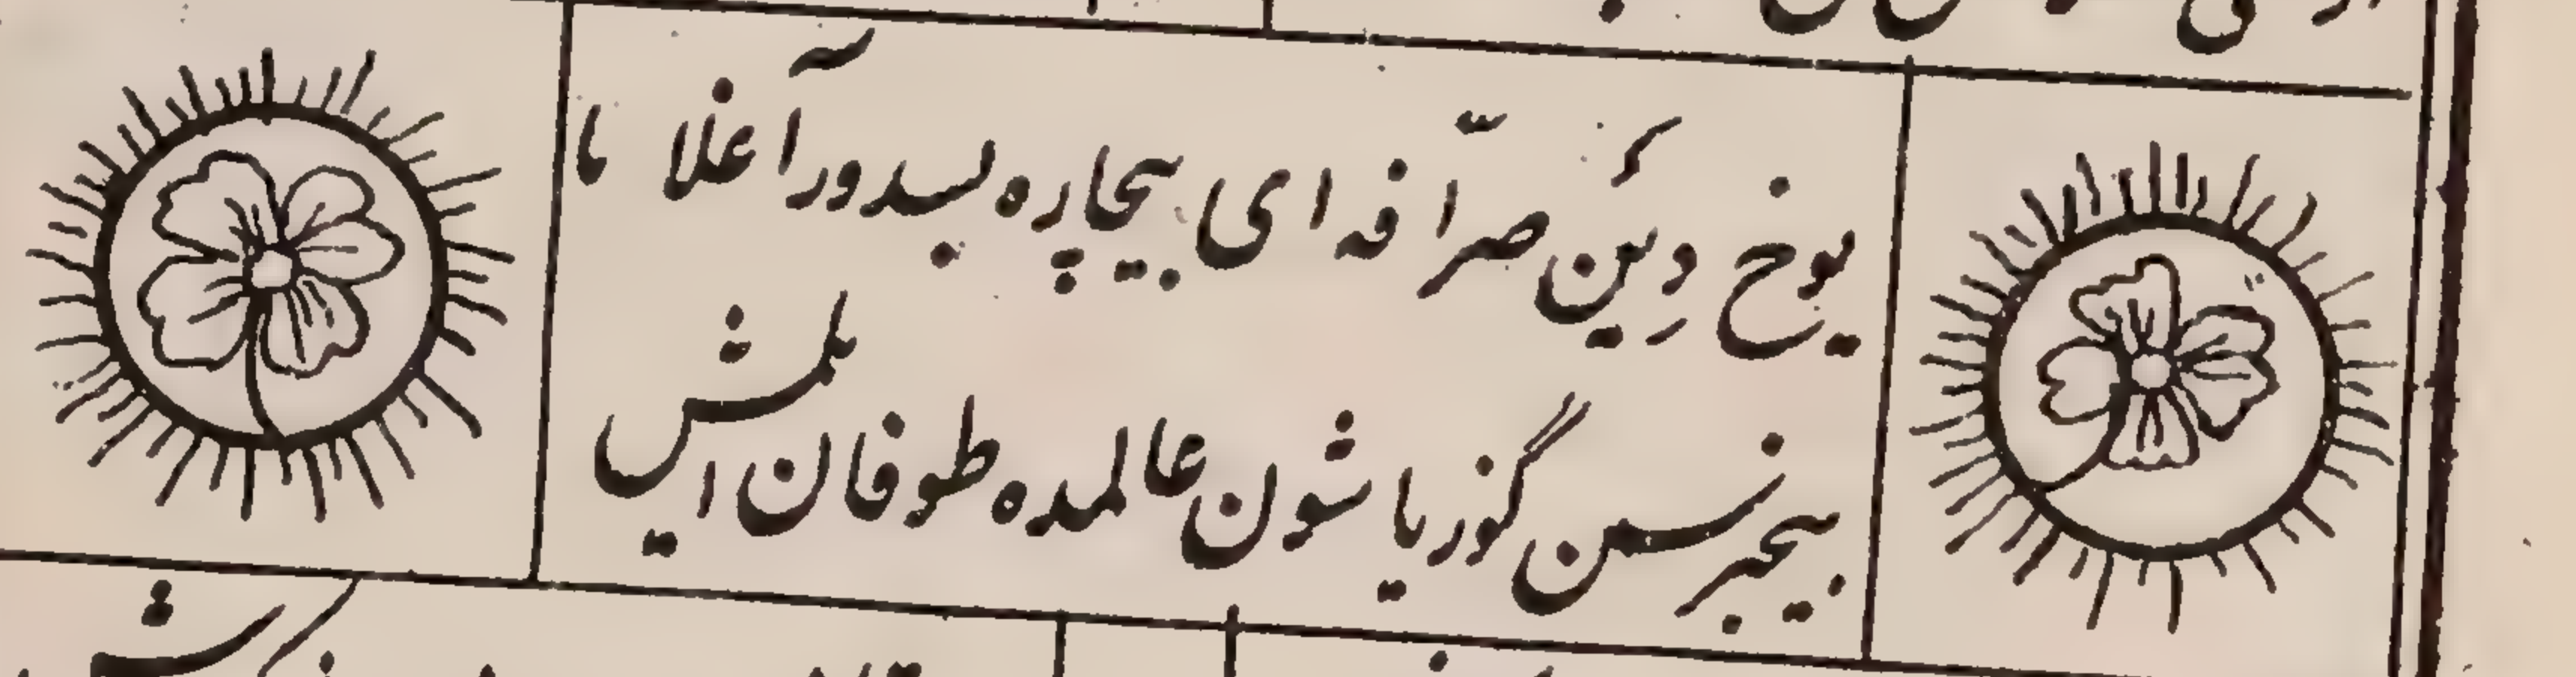 یوخ دِئین صرّافه ای بیچاره بسدور آغلاما
بیخبرسن گوز یاشون عالمده طوفان ایلمش